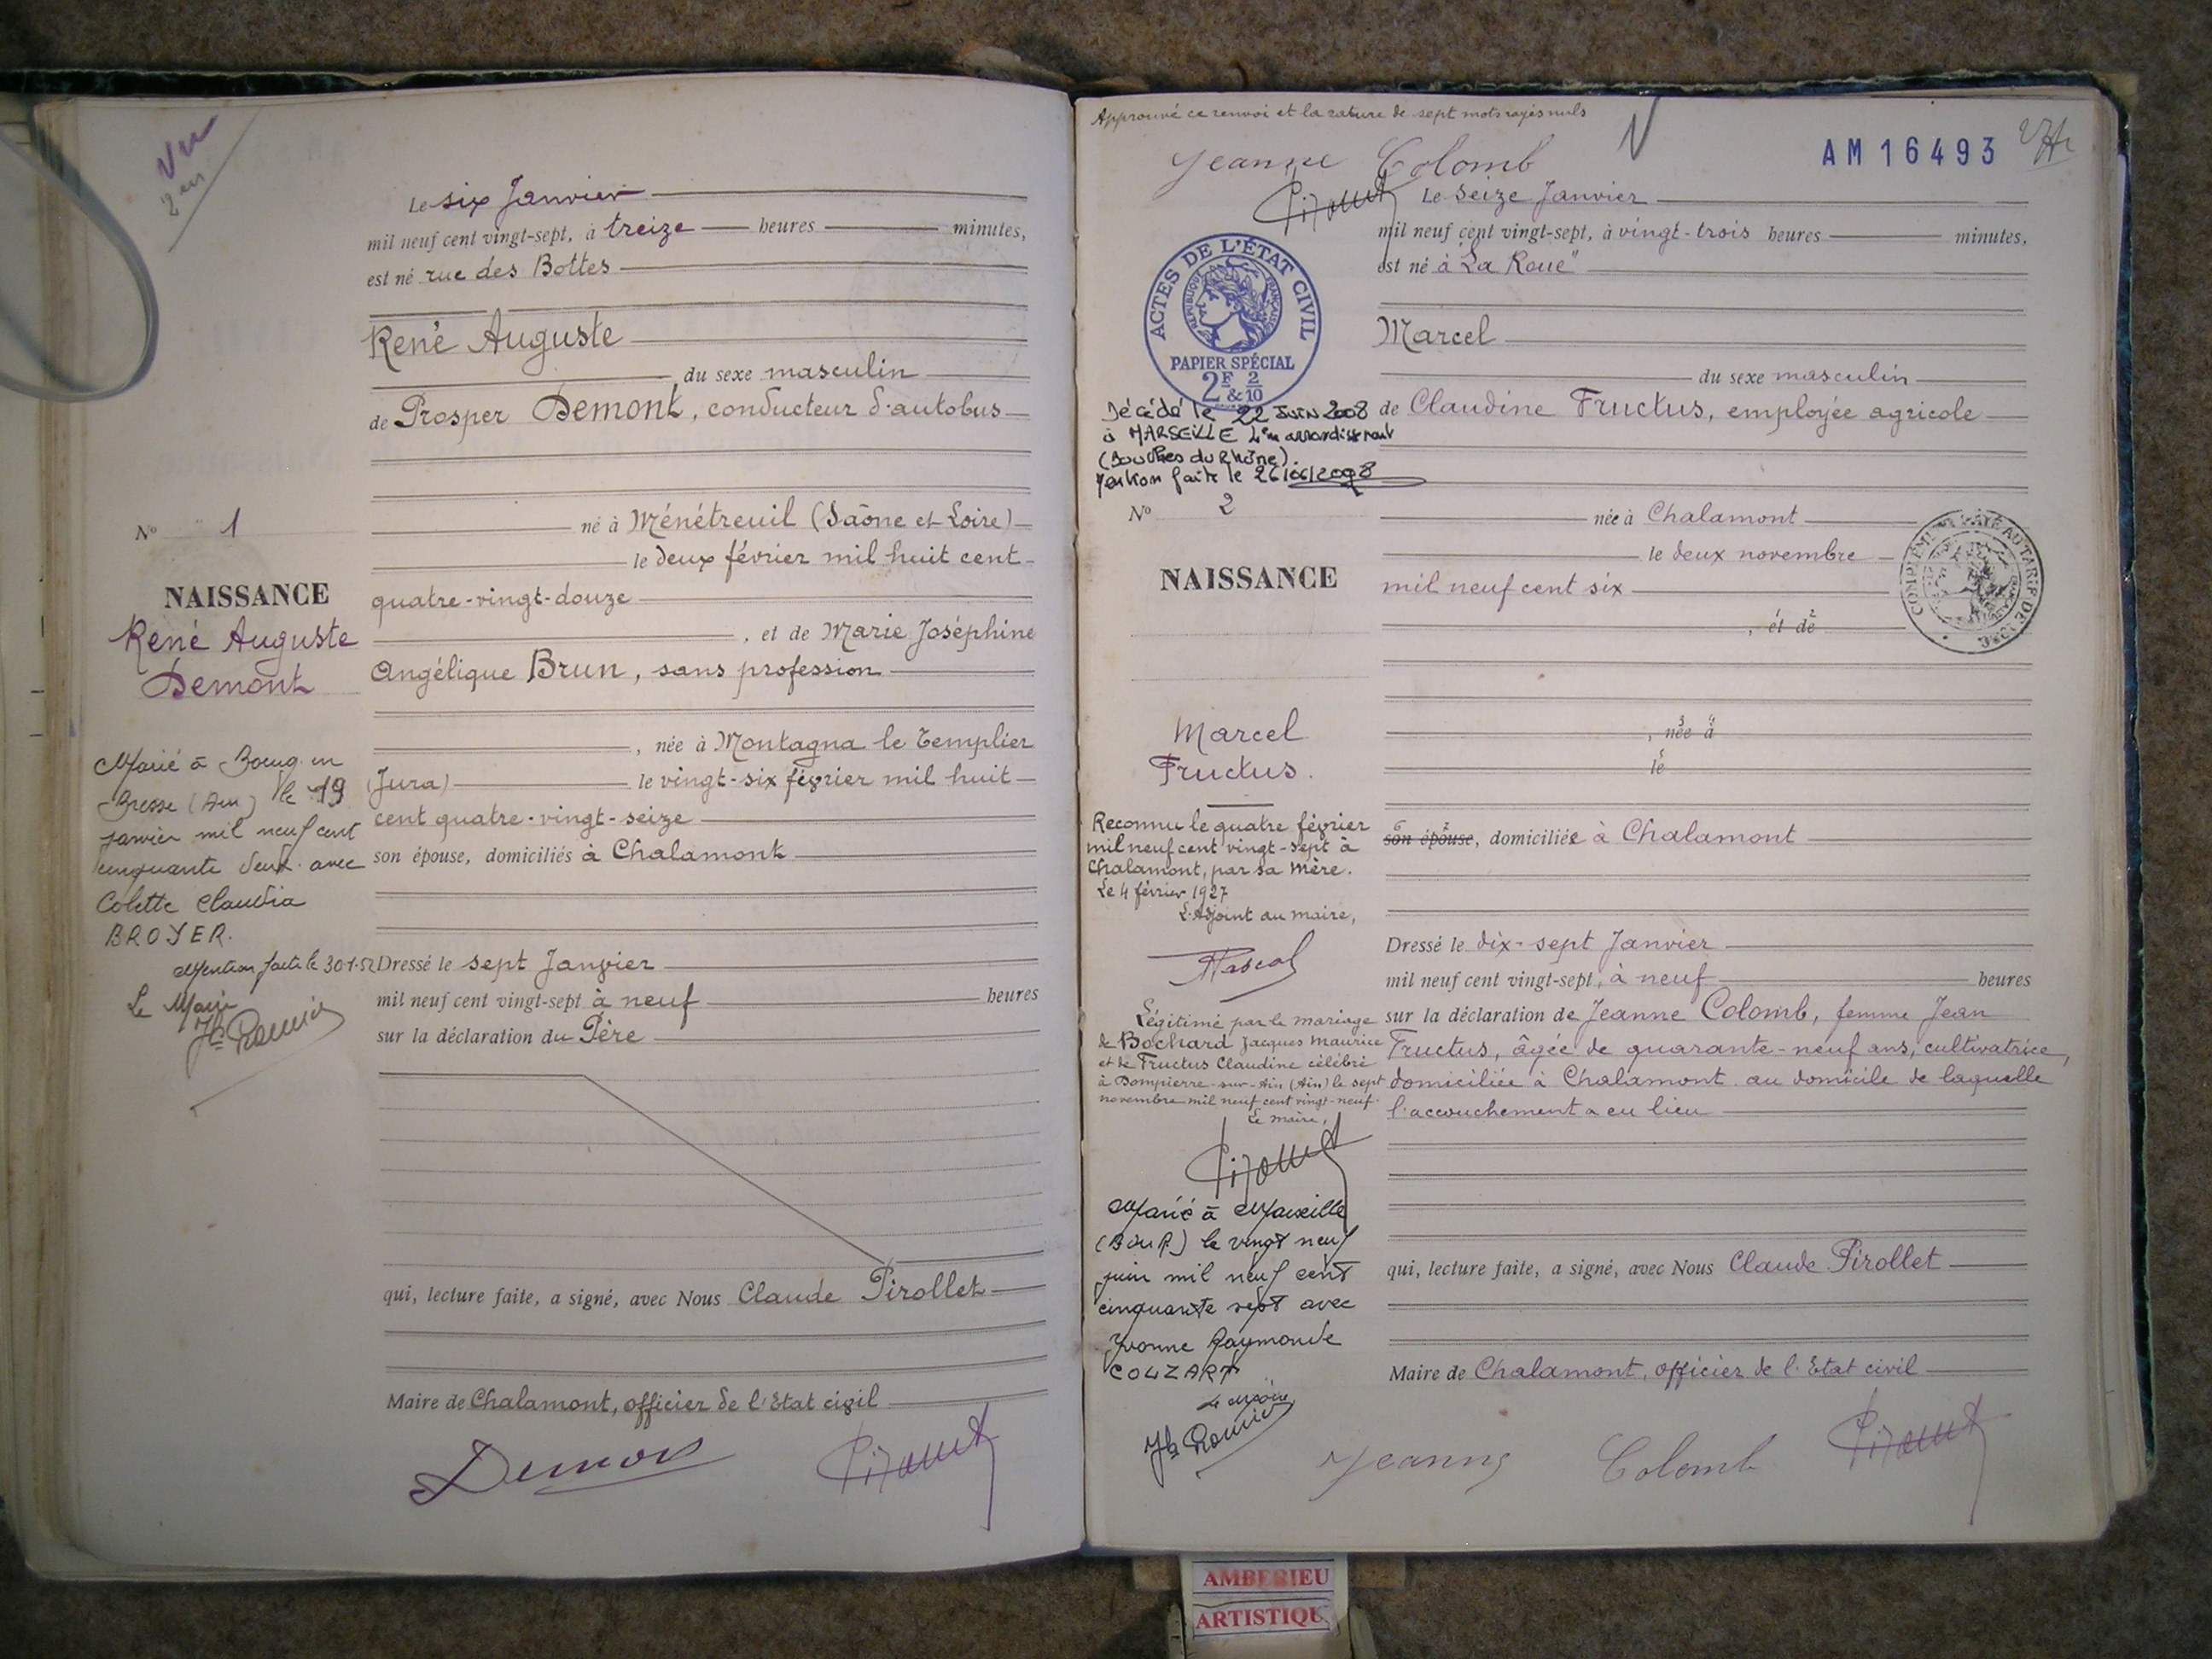 Vu
Le six Janvier
mil neuf cent vingt-sept, à treize heures minutes,
est né rue des Bottes
René Auguste
du sexe masculin
de Prosper Demont, conducteur d'autobus
né à Ménétreuil (Saône et Loire)
le deux février mil huit cent
quatre-vingt-douze
, et de Marie Joséphine
Angélique Brun, sans profession
, née à Montagna le Templier
(Jura) le vingt-six février mil huit
cent quatre-vingt-seize
son épouse, domiciliés à Chalamont
Dressé le sept Janvier
mil neuf cent vingt-sept à neuf heures
sur la déclaration du Père
qui, lecture faite, a signé, avec Nous Claude Pirollet
Maire de Chalamont, officier de l'Etat civil
N° 1
NAISSANCE
René Auguste
Demont
Marié à Bourg en
Bresse (Ain) le 19
janvier mil neuf cent
cinquante deux avec
Colette Claudia
BROYER.
Mention faite le 30-1-52
Le Maire
Approuvé ce renvoi et la rature de sept mots rayés nuls
Jeanne Colomb
AM 16493
Le seize Janvier
mil neuf cent vingt-sept, à vingt-trois heures minutes,
est né à "La Roue"
Marcel
du sexe masculin
de Claudine Fructus, employée agricole
née à Chalamont
le deux novembre
mil neuf cent six
, et de
, née à
le
son épouse, domiciliée à Chalamont
Dressé le dix-sept Janvier
mil neuf cent vingt-sept, à neuf heures
sur la déclaration de Jeanne Colomb, femme Jean
Fructus, âgée de quarante-neuf ans, cultivatrice,
domiciliée à Chalamont au domicile de laquelle
l'accouchement a eu lieu
qui, lecture faite, a signé, avec Nous Claude Pirollet
Maire de Chalamont, officier de l'Etat civil
Jeanne Colomb
ACTES DE L'ÉTAT CIVIL
RÉPUBLIQUE FRANÇAISE
PAPIER SPÉCIAL
2F & 2/10
Décédé le 22 JUIN 2008
à MARSEILLE 4em arrondissement
(Bouches du Rhône)
Mention faite le 26/06/2008
N° 2
NAISSANCE
Marcel
Fructus.
Reconnu le quatre février
mil neuf cent vingt-sept à
Chalamont, par sa mère.
Le 4 février 1927
L'Adjoint au maire,
Légitimé par le mariage
de Bochard Jacques Maurice
et de Fructus Claudine célébré
à Dompierre-sur-Ain (Ain) le sept
novembre mil neuf cent vingt-neuf.
Le maire,
Marié à Marseille
(B du R) le vingt neuf
juin mil neuf cent
cinquante sept avec
Yvonne Raymonde
COUZART
Le Maire
AMBERIEU
ARTISTIQU